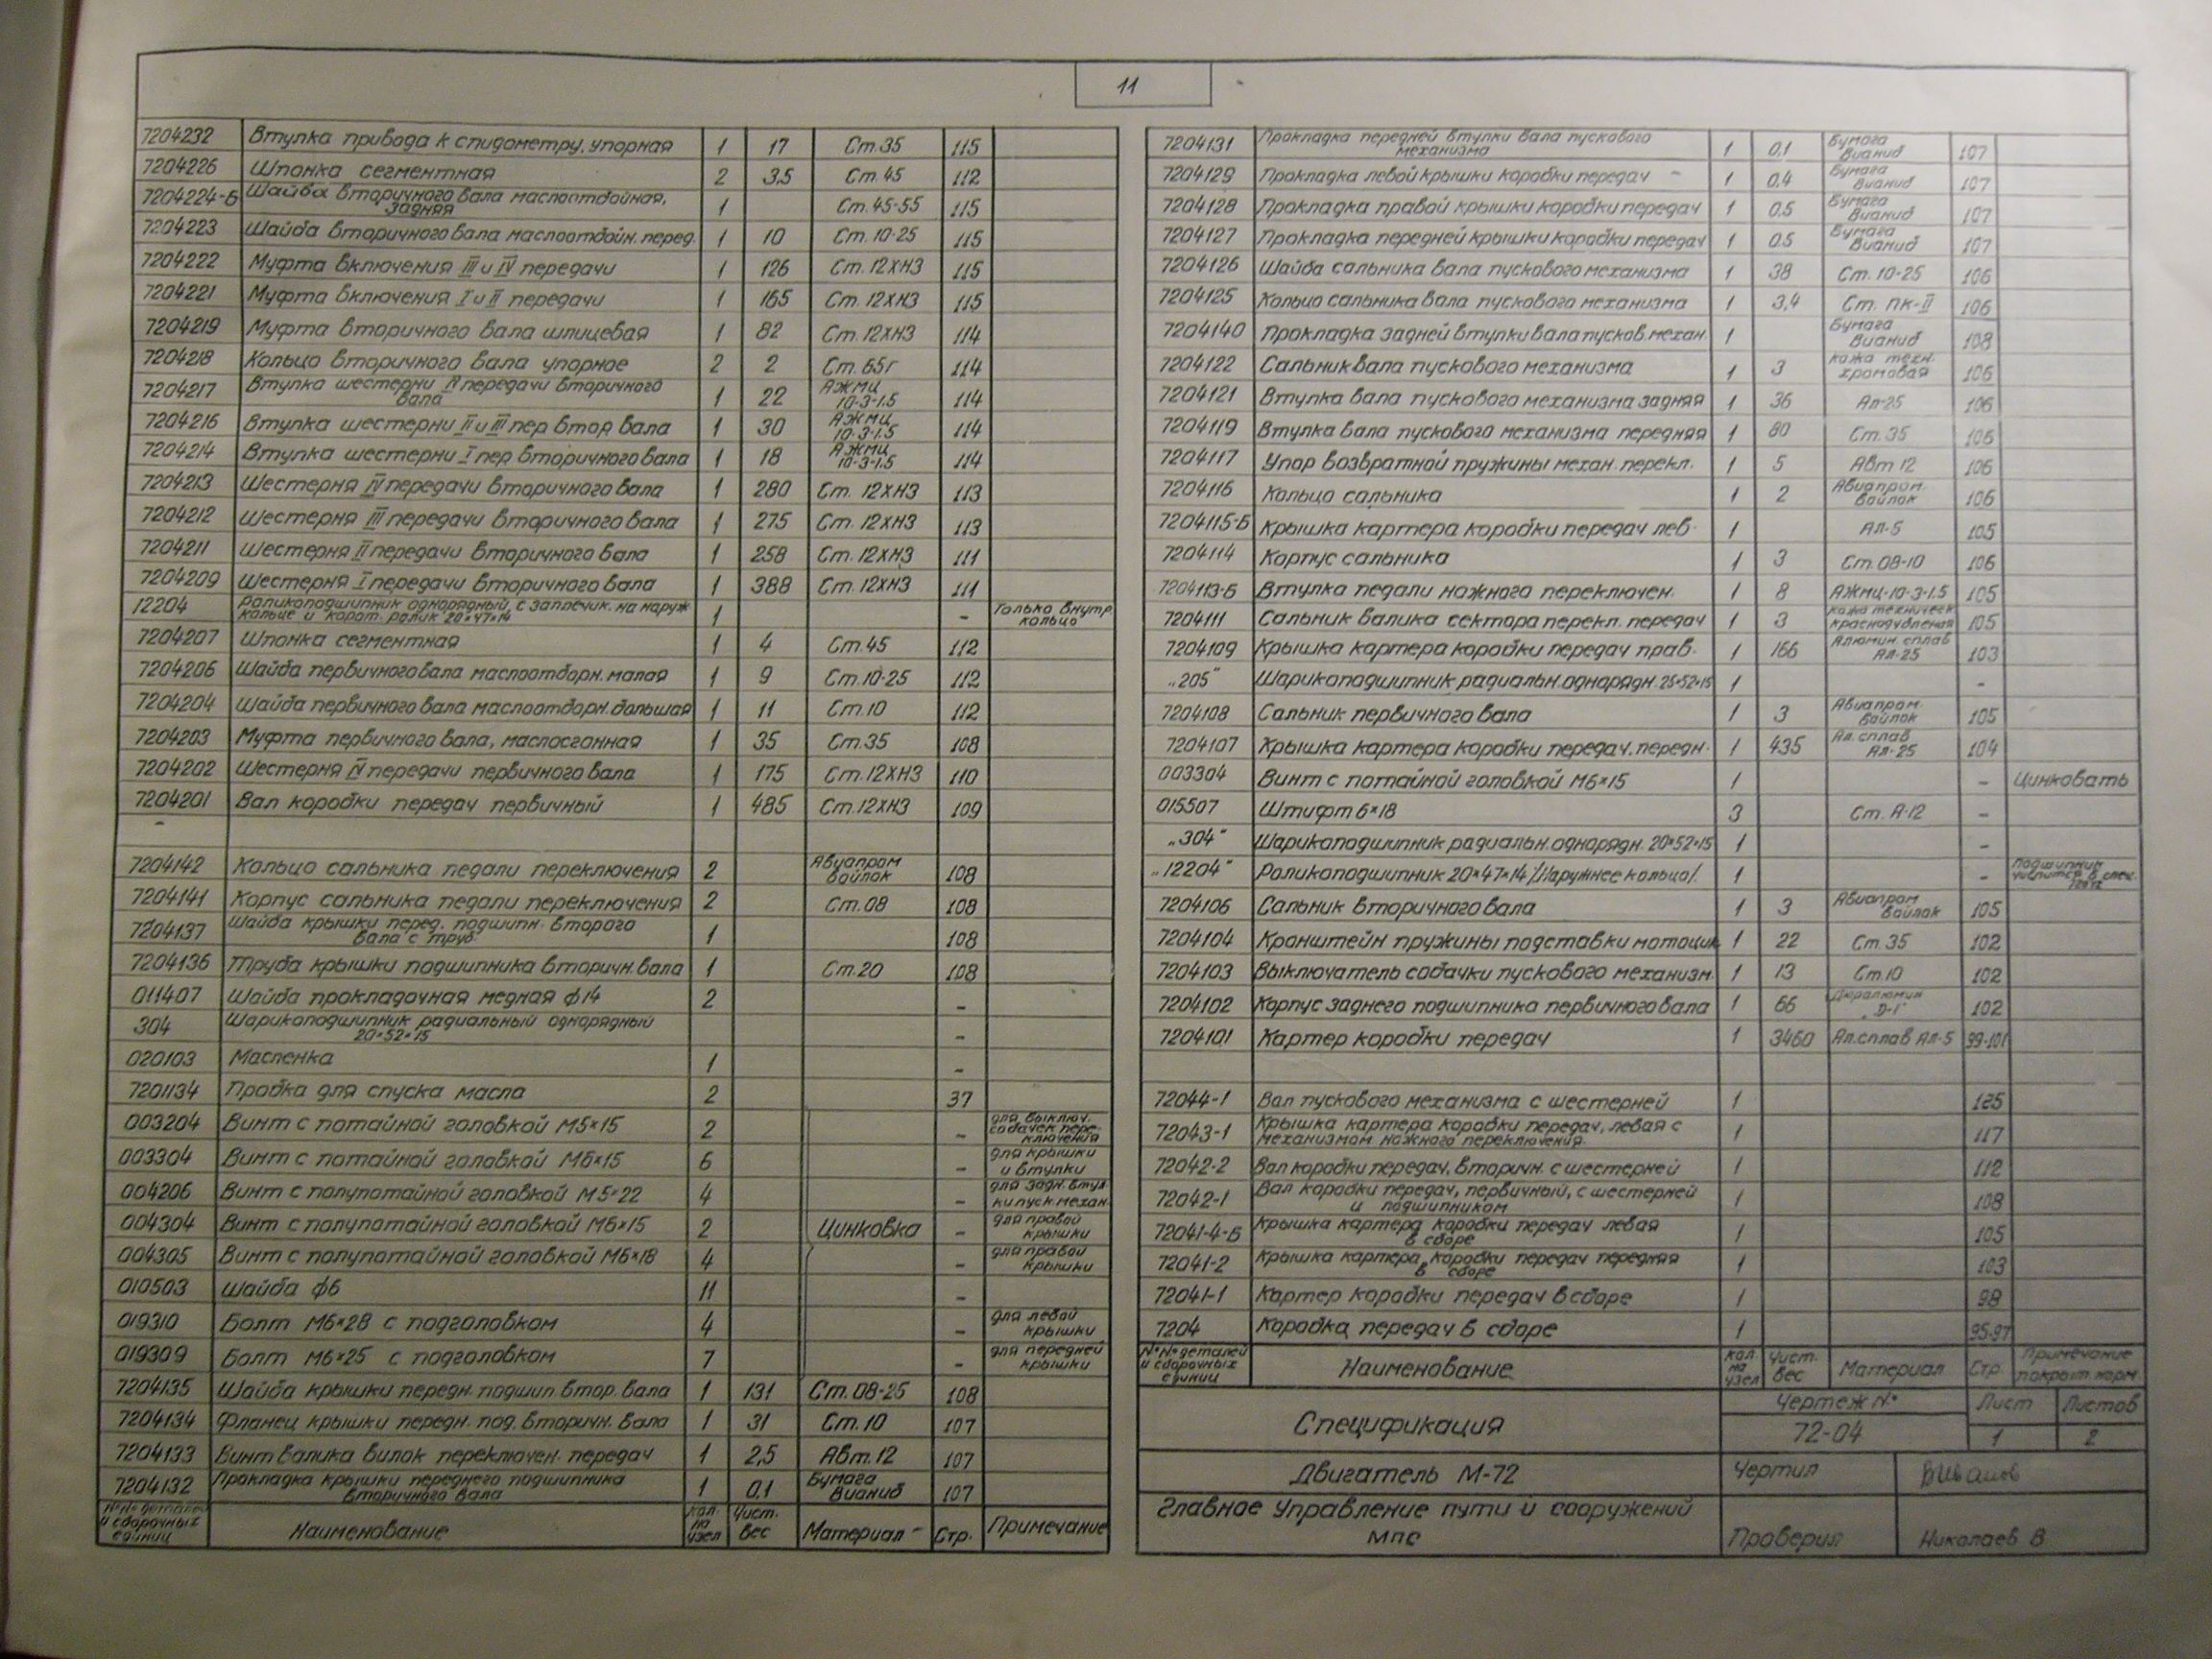 11
7204232 Втулка привода к спидометру, упорная 1 17 Ст.35 115
7204226 Шпонка сегментная 2 3,5 Ст.45 112
7204224-Б Шайба вторичного вала маслоотбойная, задняя 1 Ст.45-55 115
7204223 Шайба вторичного вала маслоотбойн. перед. 1 10 Ст.10-25 115
7204222 Муфта включения III и IV передачи 1 126 Ст.12ХН3 115
7204221 Муфта включения I и II передачи 1 165 Ст.12ХН3 115
7204219 Муфта вторичного вала шлицевая 1 82 Ст.12ХН3 114
7204218 Кольцо вторичного вала упорное 2 2 Ст.65г 114
7204217 Втулка шестерни IV передачи вторичного вала 1 22 АЖМЦ 10-3-1.5 114
7204216 Втулка шестерни II и III пер втор вала 1 30 АЖМЦ 10-3-1.5 114
7204214 Втулка шестерни I пер вторичного вала 1 18 АЖМЦ 10-3-1.5 114
7204213 Шестерня IV передачи вторичного вала 1 280 Ст. 12ХН3 113
7204212 Шестерня III передачи вторичного вала 1 275 Ст. 12ХН3 113
7204211 Шестерня II передачи вторичного вала 1 258 Ст. 12ХН3 111
7204209 Шестерня I передачи вторичного вала 1 388 Ст. 12ХН3 111
12204 Роликоподшипник однорядный, с заплечик. на наруж кольце и корот. ролик 20×47×14 1 - Только внутр. кольцо
7204207 Шпонка сегментная 1 4 Ст.45 112
7204206 Шайба первичного вала маслоотборн. малая 1 9 Ст.10-25 112
7204204 Шайба первичного вала маслоотборн. большая 1 11 Ст.10 112
7204203 Муфта первичного вала, маслосгонная 1 35 Ст.35 108
7204202 Шестерня IV передачи первичного вала 1 175 Ст.12ХН3 110
7204201 Вал коробки передач первичный 1 485 Ст.12ХН3 109
-
7204142 Кольцо сальника педали переключения 2 Авиапром войлок 108
7204141 Корпус сальника педали переключения 2 Ст.08 108
7204137 Шайба крышки перед. подшипн. второго вала с труб. 1 108
7204136 Труба крышки подшипника вторичн. вала 1 Ст.20 108
011407 Шайба прокладочная медная ф14 2 -
304 Шарикоподшипник радиальный однорядный 20×52×15 -
020103 Масленка 1 -
7201134 Пробка для спуска масла 2 37
003204 Винт с потайной головкой М5×15 2 - для выключ. собачек пере-ключения
003304 Винт с потайной головкой М6×15 6 - для крышки и втулки
004206 Винт с полупотайной головкой М5×22 4 - для задн. втул ки пуск. механ.
004304 Винт с полупотайной головкой М6×15 2 Цинковка - для правой крышки
004305 Винт с полупотайной головкой М6×18 4 - для правой крышки
010503 Шайба ф6 11 -
019310 Болт М6×28 с подголовком 4 - для левой крышки
019309 Болт М6×25 с подголовком 7 - для передней крышки
7204135 Шайба крышки передн. подшип. втор. вала 1 131 Ст.08-25 108
7204134 Фланец крышки передн. под. вторичн. вала 1 31 Ст.10 107
7204133 Винт валика вилок переключен. передач 1 2,5 Авт.12 107
7204132 Прокладка крышки переднего подшипника вторичного вала 1 0,1 Бумага Вианид 107
№№ деталей и сборочных единиц Наименование Кол. на узел Чист. вес Материал Стр. Примечание
7204131 Прокладка передней втулки вала пускового механизма 1 0,1 Бумага Вианид 107
7204129 Прокладка левой крышки коробки передач 1 0,4 Бумага Вианид 107
7204128 Прокладка правой крышки коробки передач 1 0,5 Бумага Вианид 107
7204127 Прокладка передней крышки коробки передач 1 0.5 Бумага Вианид 107
7204126 Шайба сальника вала пускового механизма 1 38 Ст. 10-25 106
7204125 Кольцо сальника вала пускового механизма 1 3,4 Ст. ПК-II 106
7204140 Прокладка задней втулки вала пусков. механ. 1 Бумага Вианид 108
7204122 Сальник вала пускового механизма 1 3 кожа техн. хромовая 106
7204121 Втулка вала пускового механизма задняя 1 36 Ал-25 106
7204119 Втулка вала пускового механизма передняя 1 80 Ст.35 106
7204117 Упор возвратной пружины механ. перекл. 1 5 Авт 12 106
7204116 Кольцо сальника 1 2 Авиапром. войлок 106
7204115-Б Крышка картера коробки передач лев. 1 Ал-5 105
7204114 Корпус сальника 1 3 Ст.08-10 106
7204113-Б Втулка педали ножного переключен. 1 8 АЖМЦ-10-3-1.5 105
7204111 Сальник валика сектора перекл. передач 1 3 кожа техническ краснодубленая 105
7204109 Крышка картера коробки передач прав. 1 166 Алюмин. сплав Ал-25 103
„205" Шарикоподшипник радиальн. однорядн. 25×52×15 1 -
7204108 Сальник первичного вала 1 3 Авиапром. войлок 105
7204107 Крышка картера коробки передач. передн. 1 435 Ал. сплав Ал-25 104
003304 Винт с потайной головкой М6×15 1 - Цинковать
015507 Штифт 6×18 3 Ст. А-12 -
„304" Шарикоподшипник радиальн. однорядн. 20×52×15 1 -
„12204" Роликоподшипник 20×47×14 /Наружнее кольцо/. 1 - подшипник числится в спец.
7204106 Сальник вторичного вала 1 3 Авиапром войлок 105
7204104 Кронштейн пружины подставки мотоцик. 1 22 Ст.35 102
7204103 Выключатель собачки пускового механизм. 1 13 Ст.10 102
7204102 Корпус заднего подшипника первичного вала 1 66 Дюралюмин „Д-1" 102
7204101 Картер коробки передач 1 3460 Ал.сплав Ал-5 99-101
72044-1 Вал пускового механизма с шестерней 1 125
72043-1 Крышка картера коробки передач, левая с механизмом ножного переключения. 1 117
72042-2 Вал коробки передач, вторичн. с шестерней 1 112
72042-1 Вал коробки передач, первичный, с шестерней и подшипником 1 108
72041-4-Б Крышка картера коробки передач левая в сборе 1 105
72041-2 Крышка картера коробки передач передняя в сборе 1 103
72041-1 Картер коробки передач в сборе 1 98
7204 Коробка передач в сборе 1 95-97
№№ деталей и сборочных единиц Наименование Кол. на узел Чист. вес Материал Стр. Примечание покрыт. норм.
Спецификация Чертеж № 72-04 Лист 1 Листов 2
Двигатель М-72 Чертил
Главное Управление пути и сооружений МПС Проверил Николаев В